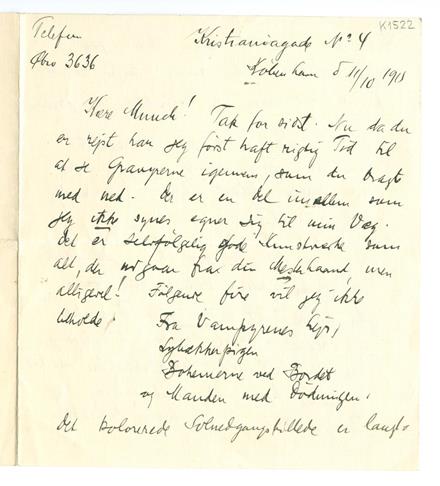 K1522
Telefon
Øbro 3636
Kristianiagade No 4
København d 11/10 1918
Kære Munch! Tak for sidst. Nu da du
er rejst har jeg først haft rigtig Tid til
at se Gravyrerne igennem, som du bragt
med ned. Der er en Del imellem som
jeg ikke synes egner sig til min Væg.
Det er selvfølgelig gode Kunstværker som
alt, der udgaar fra din Mesterhaand, men
alligevel! Følgende fire vil jeg ikke
beholde: Fra Vampyrenes
Bohemerne ved Bordet
og Manden med Dødningen.
Det kolorerede Solnedgangsbillede er langt